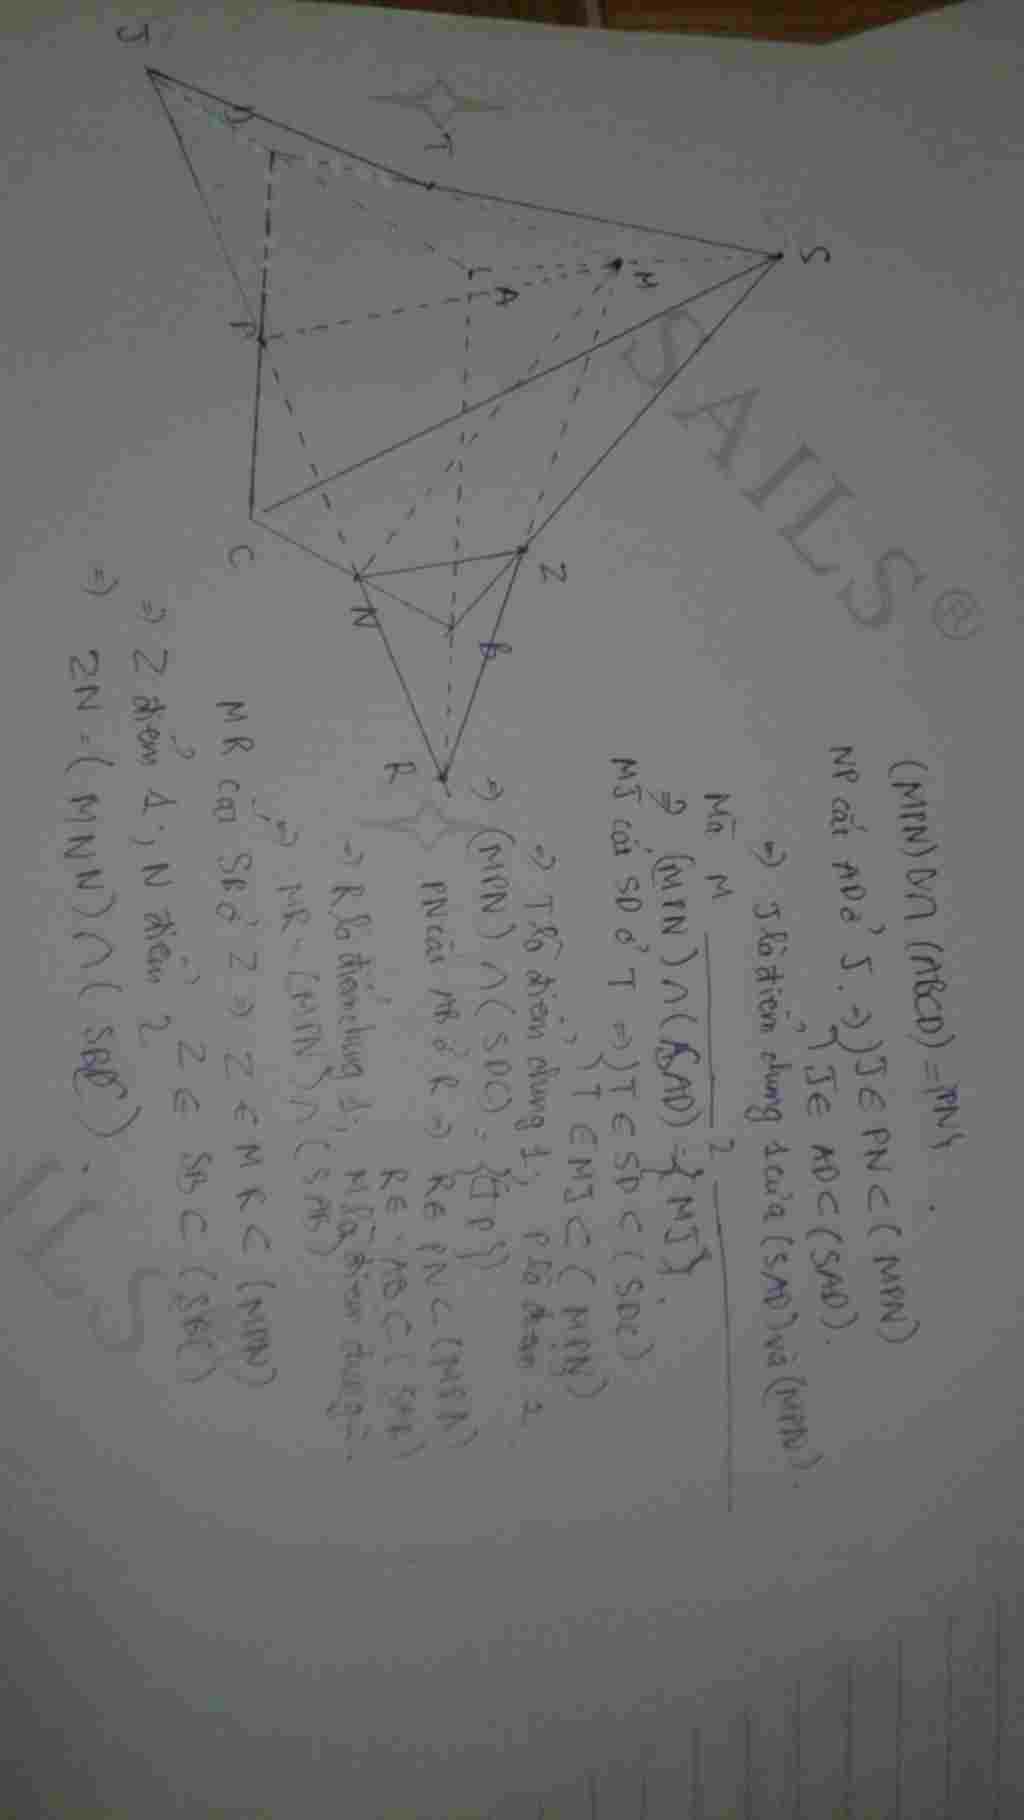 J
D
T
S
M
A
P
C
N
Z
B
R
SAILS®
(MPN) ∩ (ABCD) = {PN}.
NP cắt AD ở J. => } J ∈ PN ⊂ (MPN)
J ∈ AD ⊂ (SAD).
=> J là điểm chung 1 của (SAD) và (MPN).
Mà M 2
=> (MPN) ∩ (SAD) = {MJ}.
MJ cắt SD ở T => } T ∈ SD ⊂ (SDC)
T ∈ MJ ⊂ (MPN)
=> T là điểm chung 1, P là điểm 2.
=> (MPN) ∩ (SDC) = {TP}
PN cắt AB ở R => R ∈ PN ⊂ (MPN)
R ∈ AB ⊂ (SAB)
=> R là điểm chung 1, M là điểm chung
=> MR = (MPN) ∩ (SAB)
MR cắt SB ở Z => Z ∈ MR ⊂ (MPN)
Z ∈ SB ⊂ (SBC)
=> Z điểm 1; N điểm 2
=> ZN = (MNN) ∩ (SBC).